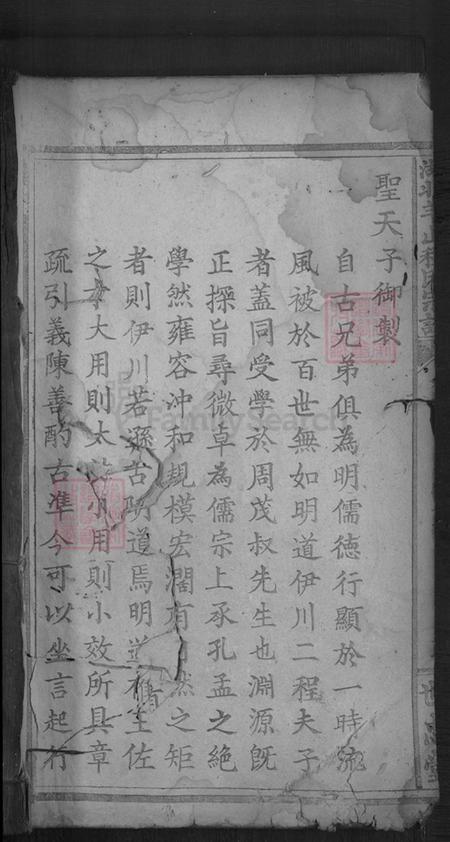 聖天子御製
自古兄弟俱為明儒德行顯於一時流
風被於百世無如明道伊川二程夫子
者蓋同受學於周茂叔先生也淵源既
正探旨尋微卓為儒宗上承孔孟之絕
學然雍容沖和規模宏濶有自然之矩
者則伊川若遜古明道焉明道有王佐
之才大用則大效小用則小效所具章
疏引義陳善酌古準今可以坐言起行
FamilySearch